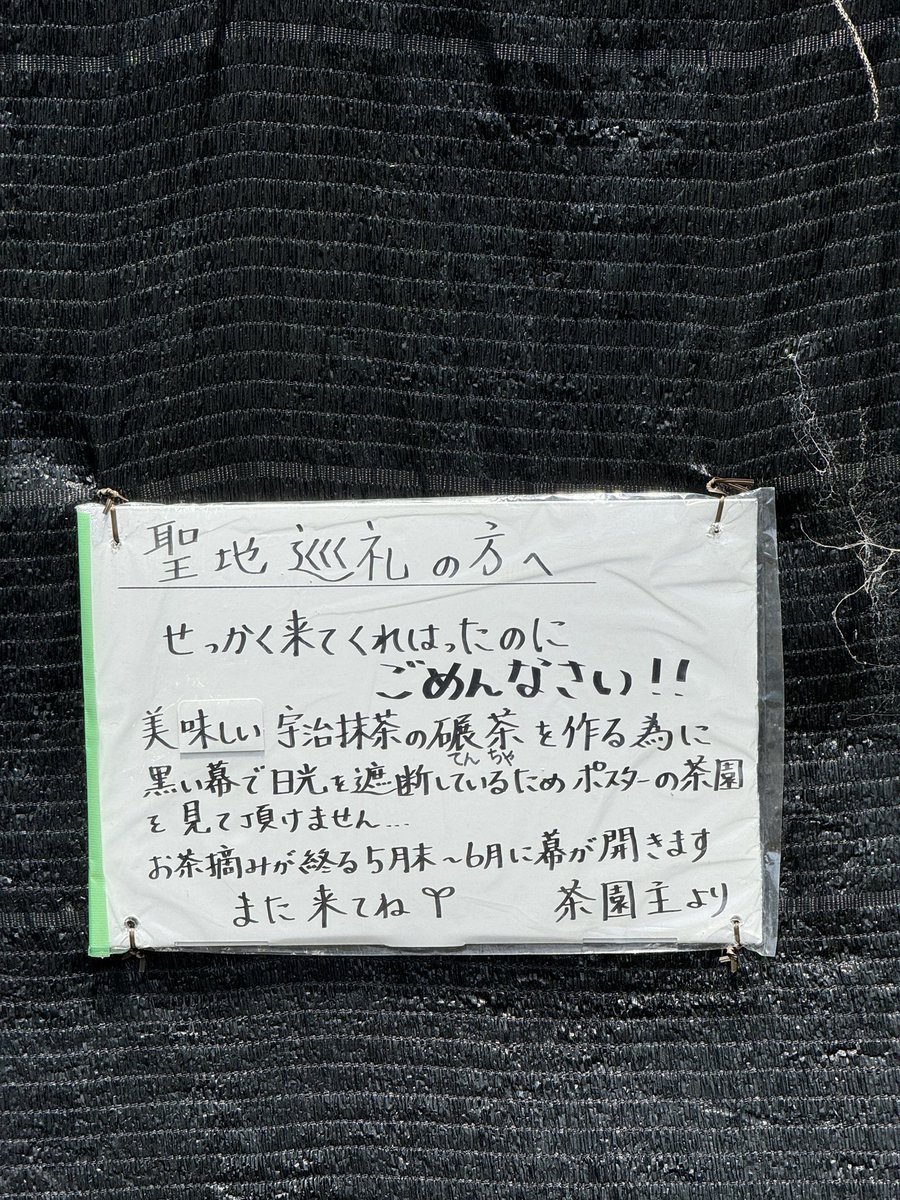 聖地巡礼の方へ
せっかく来てくれはったのに
ごめんなさい!!
美味しい宇治抹茶の碾茶を作る為に
てんちゃ
黒い幕で日光を遮断しているためポスターの茶園
を見て頂けません...
お茶摘みが終る5月末〜6月に幕が開きます
また来てね 茶園主より